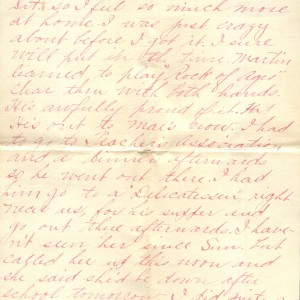 it. so I feel so much more
at home. I was just crazy
about before I got it. I sure
will put in the time. Martin
learned to play "Rock of Ages"
clear thru with both hands.
He's awfully proud of it. Ha!
He's out to Mae's now. I had
to go to Teacher's Association
and a dinner afterwards
so he went out there. I had
him go to a "Delicatessen, right
near us, for his supper and
go out there afterwards. I have-
n't seen her since Sun. but
called her up this noon and
she said she'd be down after
school tomorrow. I had quite